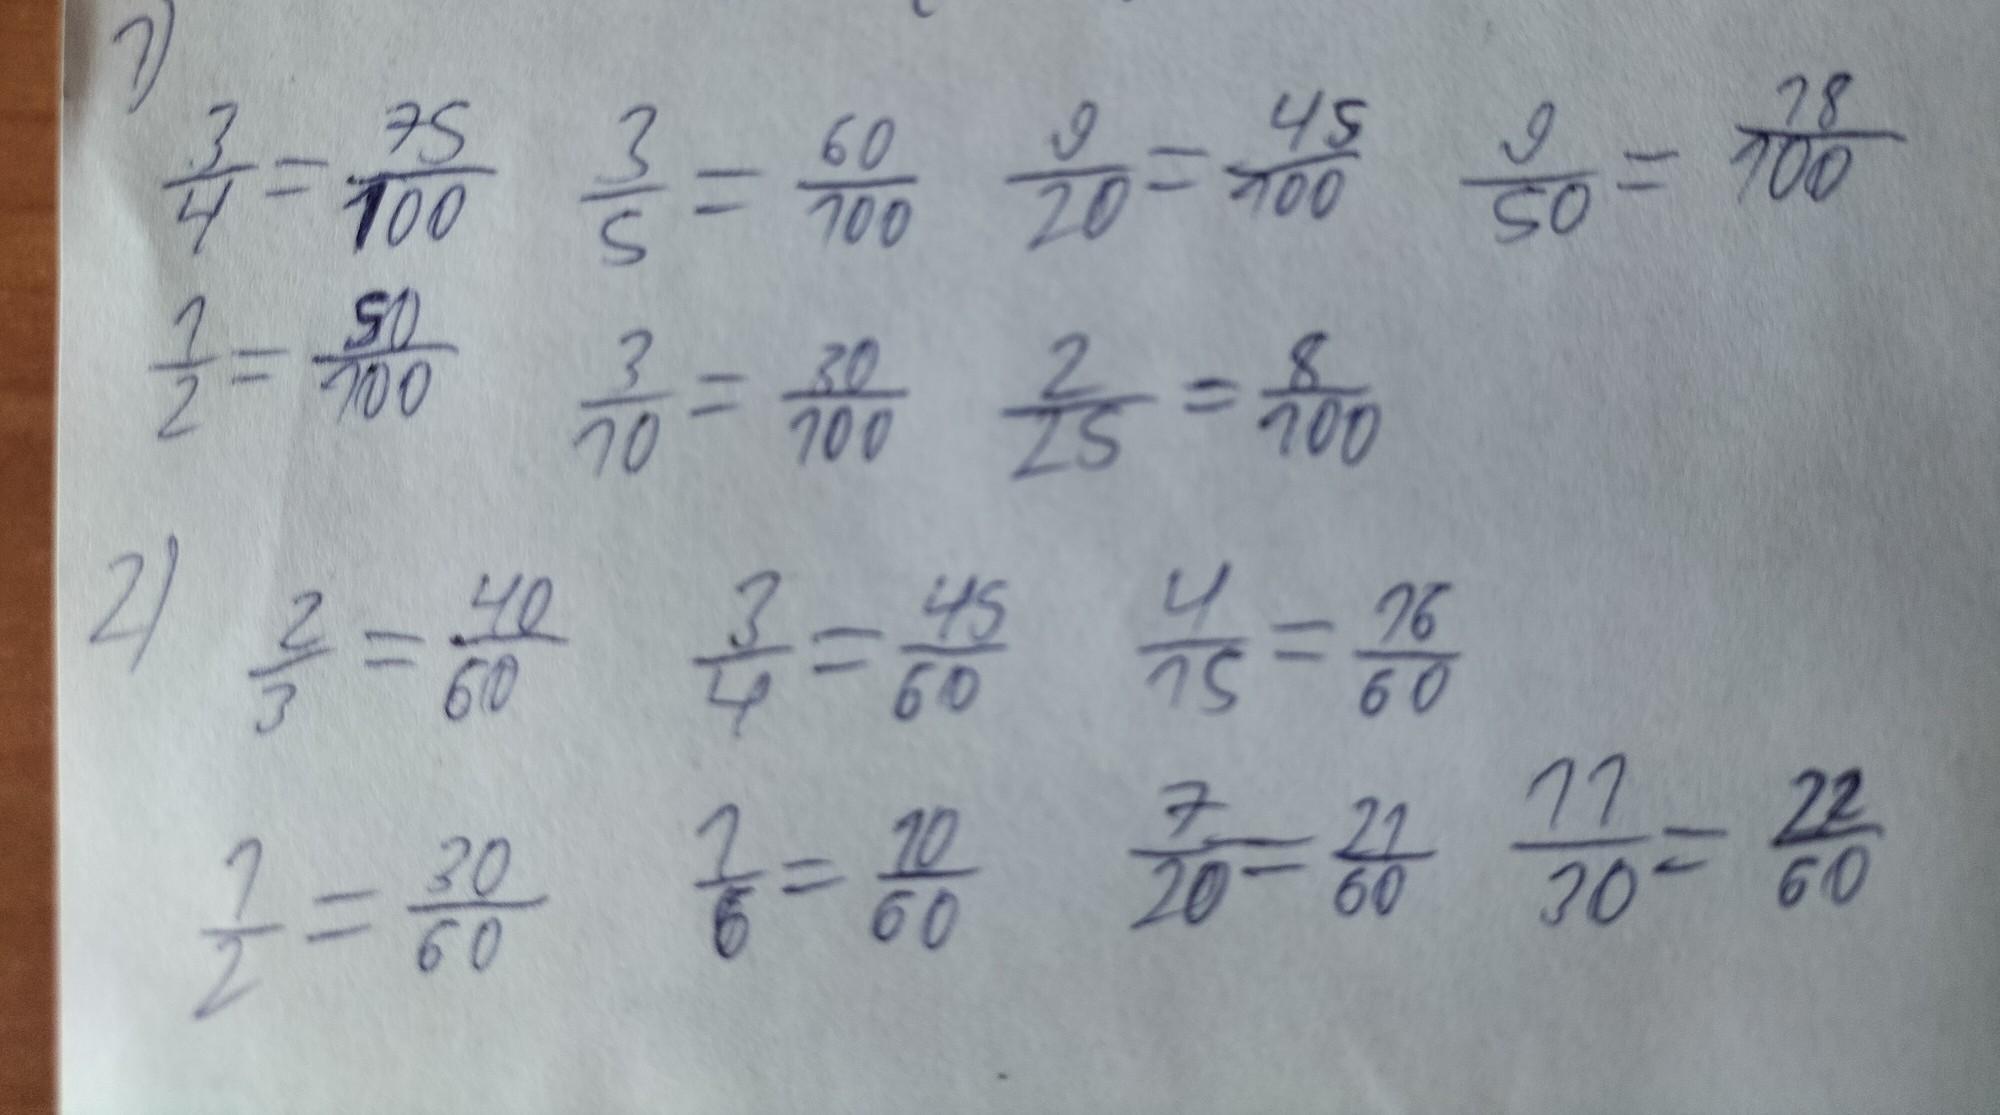 1)
3/4 = 75/100 3/5 = 60/100 9/20 = 45/100 9/50 = 18/100
1/2 = 50/100 3/10 = 30/100 2/25 = 8/100
2)
2/3 = 40/60 3/4 = 45/60 4/15 = 16/60
1/2 = 30/60 1/6 = 10/60 7/20 = 21/60 11/30 = 22/60